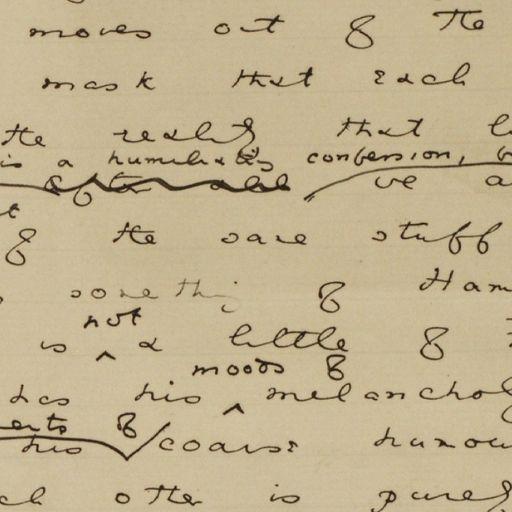 moves out of the
mask that each
the reality that
is a humiliating confession,
after all we a
of the same stuff
something of Ham
not
is a little of
moods of
has his melanchol
ents of
his coarse humou
ch other is purel